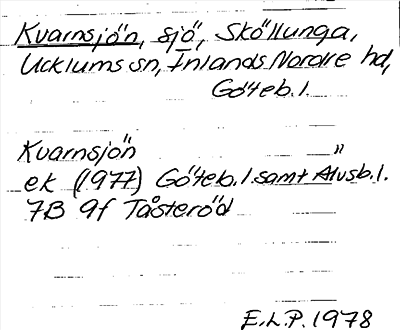 Kvarnsjön, sjö, Sköllunga,
Ucklums sn, Inlands Nordre hd,
Göteb. l.
Kvarnsjön "
ek (1977) Göteb. l. samt Älvsb. l.
7B 9f Tåsteröd
E.L.P. 1978